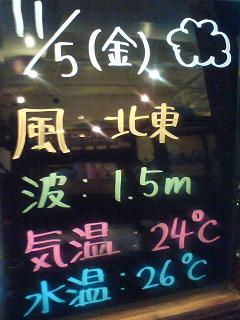 11/5(金)
風:北東
波:1.5m
気温:24℃
水温:26℃